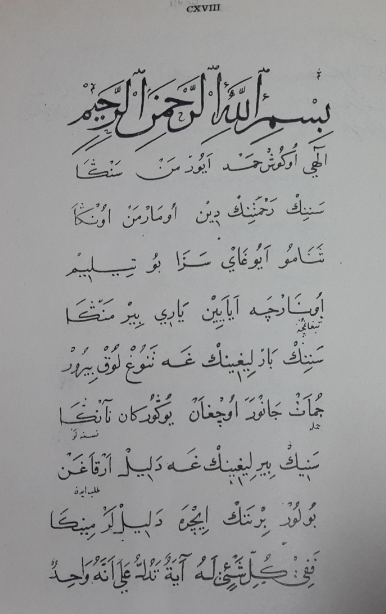 CXVIII
بِسْمِ اللّٰهِ الرَّحْمٰنِ الرَّحِيْمِ
الٰهِي اُوكُوشْ حَمْد اَيُورْ مَنْ سَنْكَا
سَنِنْكْ رَحْمَتِنْكْ دِيْن اُومَارْمَنْ اُونْكَا
ثَنَامُو اَيُوغَايْ سَزَا بُو تِيلِيمْ
اُونَارْچَه اَيَايِيْن يَارِي بِيرْ مَنْكَا
سَنِنْكْ بَارْلِيغِينْكْ غَه تَنُوغْ لُوقْ بِيرُورْ
جُمَادْ جَانْوَرْ اُوچْغَانْ يُوكُورْكَان نَانْكَا
سَنِينْكْ بِيرلِيغِينْكْ غَه دَلِيلْ اَرْقَاغَنْ
بُولُورْ بِرْ نَنْكْ اِيچْرَه دَلِيلْ لَرْ مِينْكَا
فَفِي كُلِّ شَيْءٍ لَهُ آيَةٌ تَدُلُّ عَلَى اَنَّهُ وَاحِدٌ